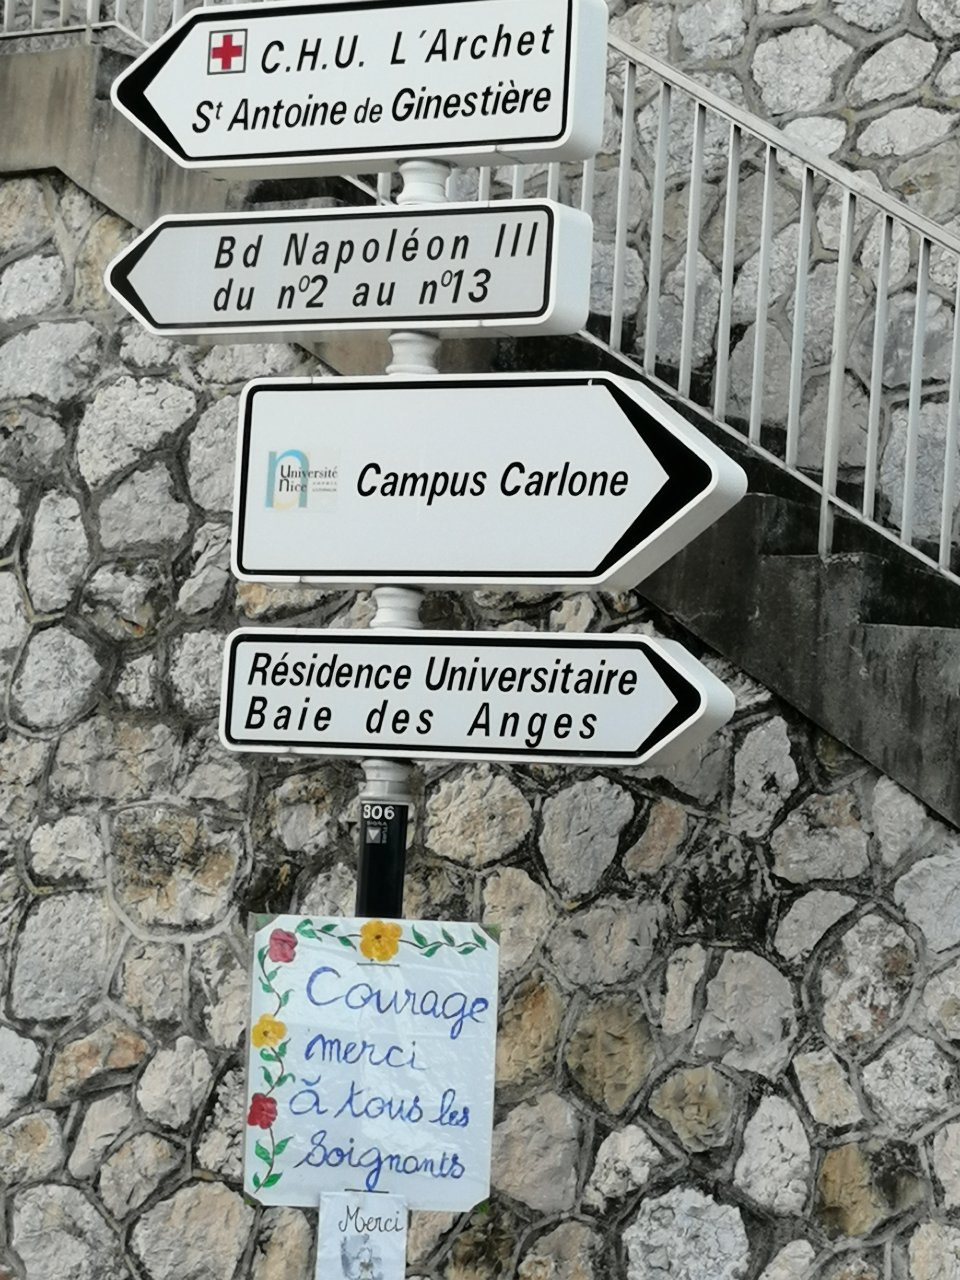 C.H.U. L'Archet
St Antoine de Ginestière
Bd Napoléon III
du nº2 au nº13
Université
nice
Campus Carlone
Résidence Universitaire
Baie des Anges
306
Courage
merci
à tous les
Soignants
Merci